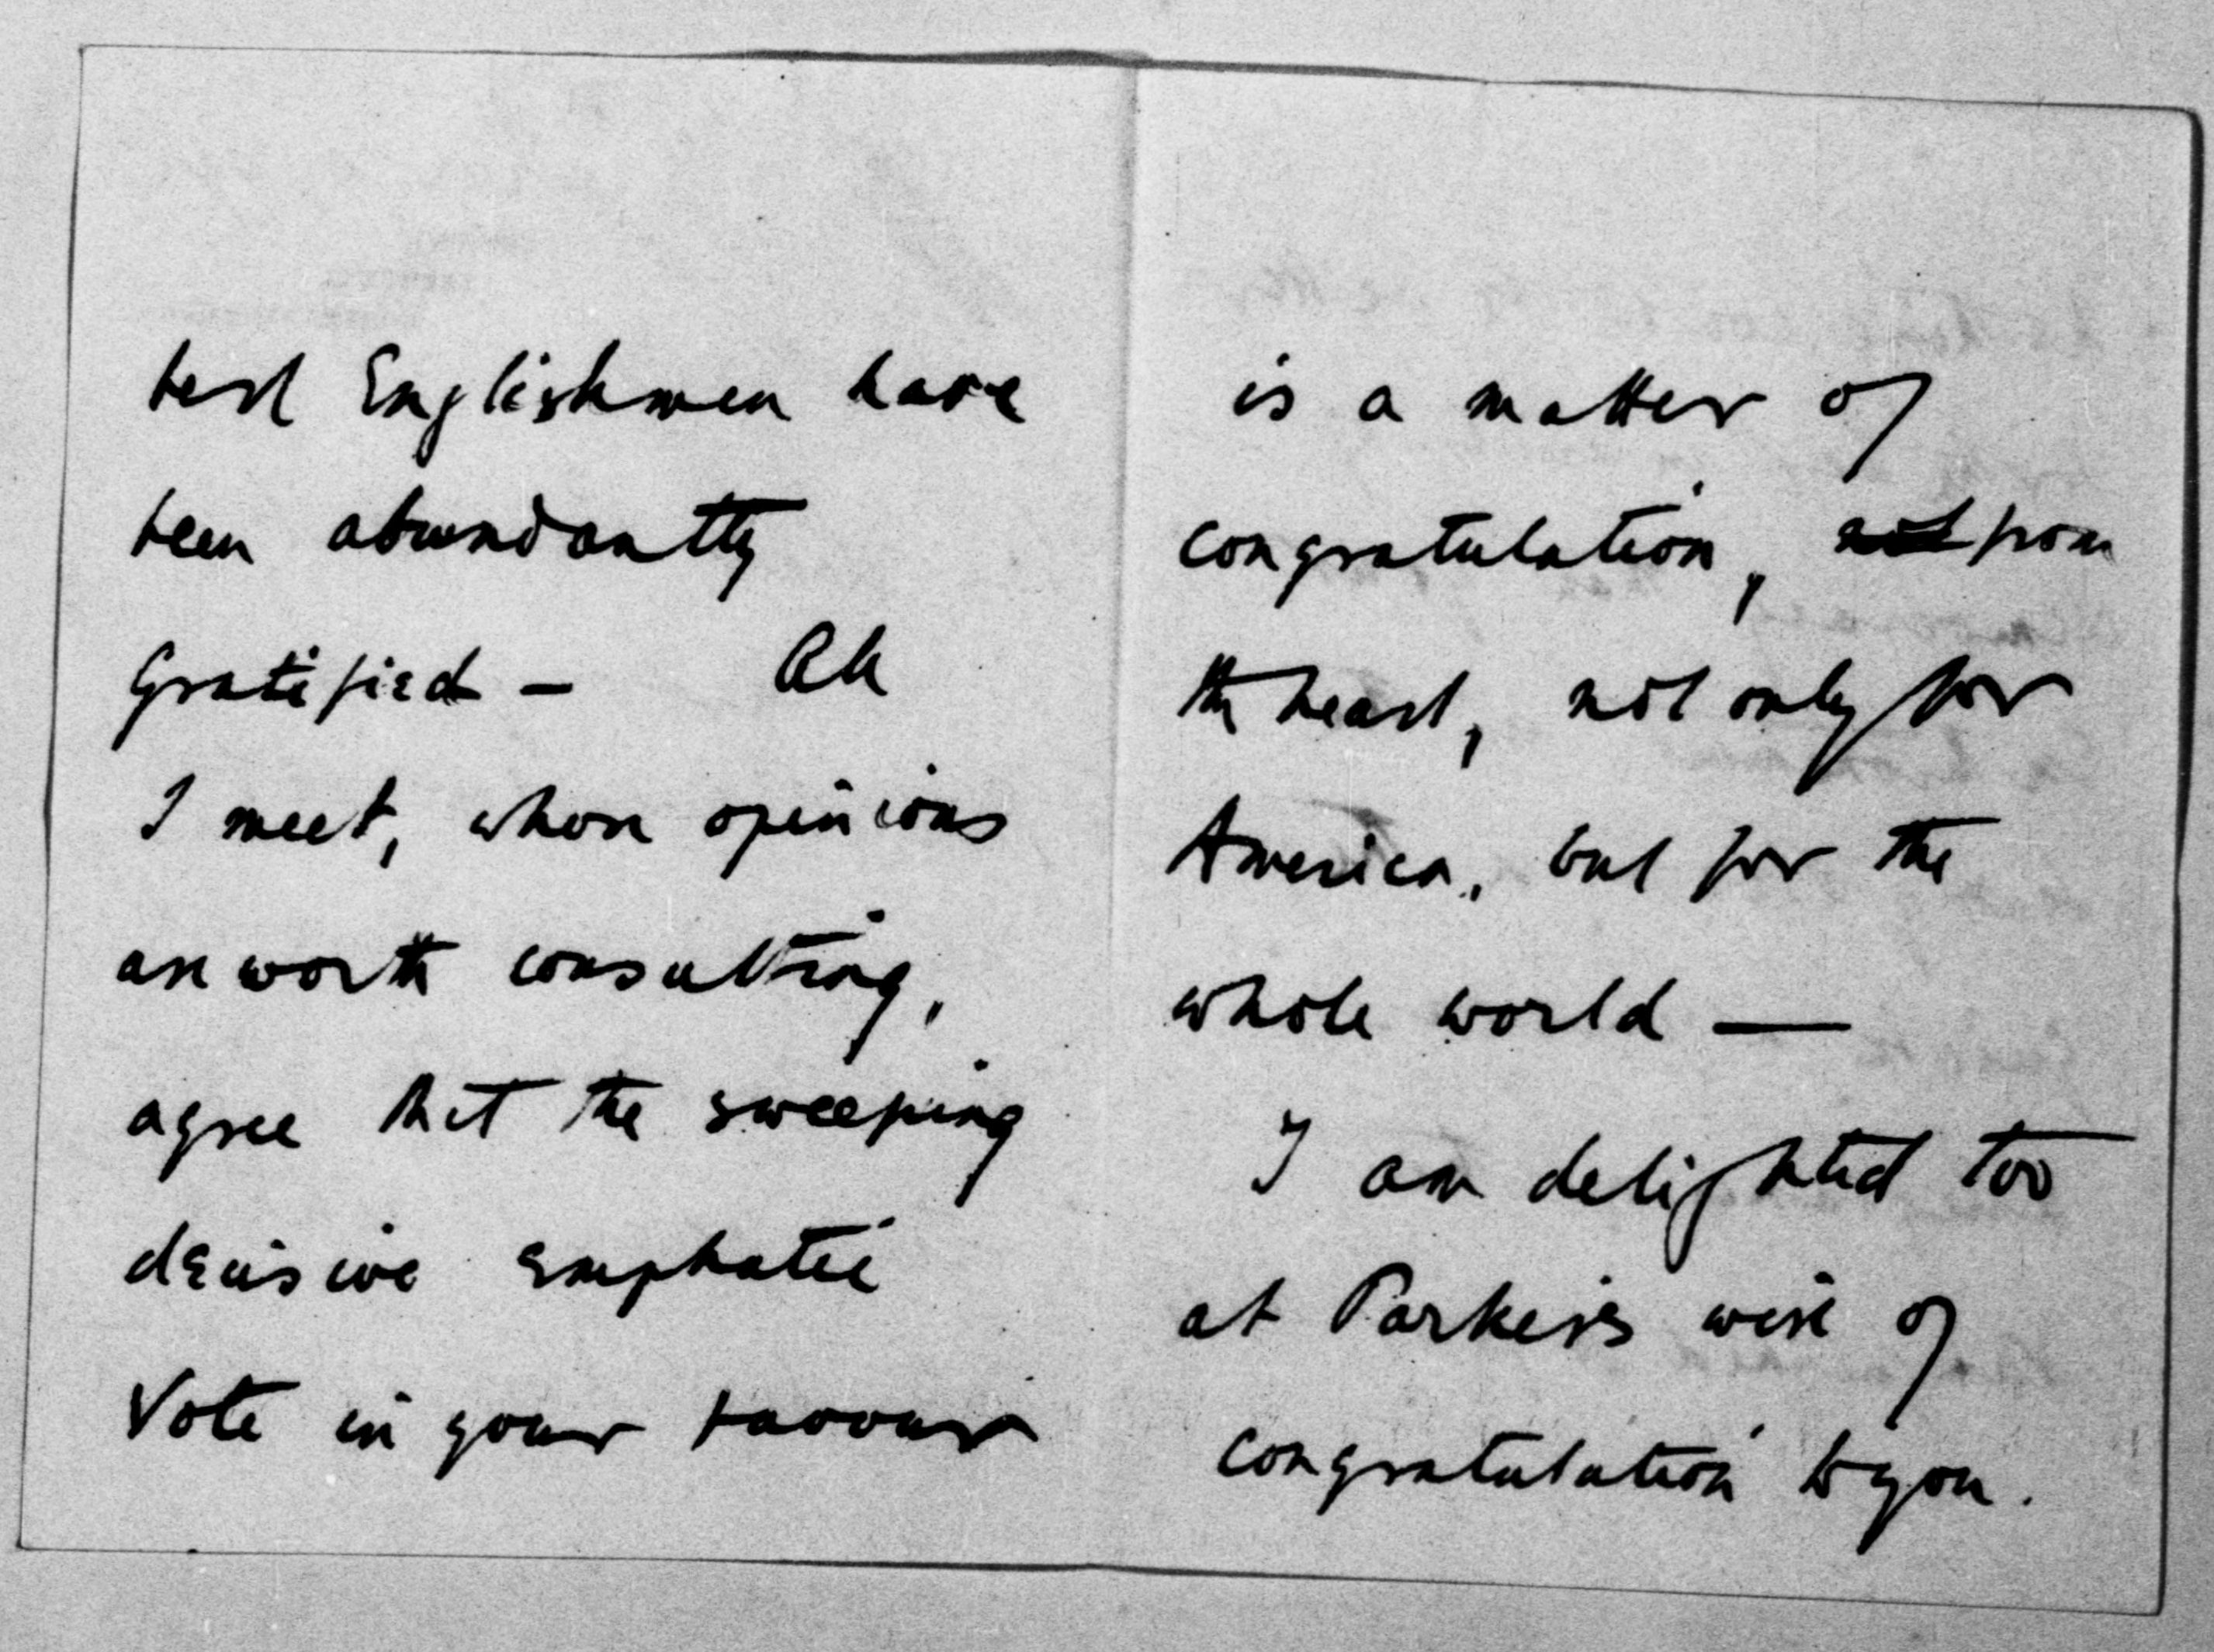 best Englishmen have
been abundantly
gratified – All
I meet, whose opinions
are worth consulting,
agree that the sweeping
decisive emphatic
Vote in your favour
is a matter of
congratulation, not from
the heart, not only for
America, but for the
whole world —
I am delighted too
at Parker's wire of
congratulation to you.